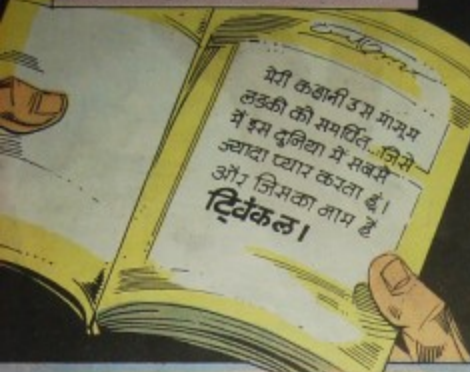 मेरी कहानी उस मासूम
लडकी को समर्पित..जिसे
मैं इस दुनिया में सबसे
ज्यादा प्यार करता हूं।
और जिसका नाम है
ट्विंकल।